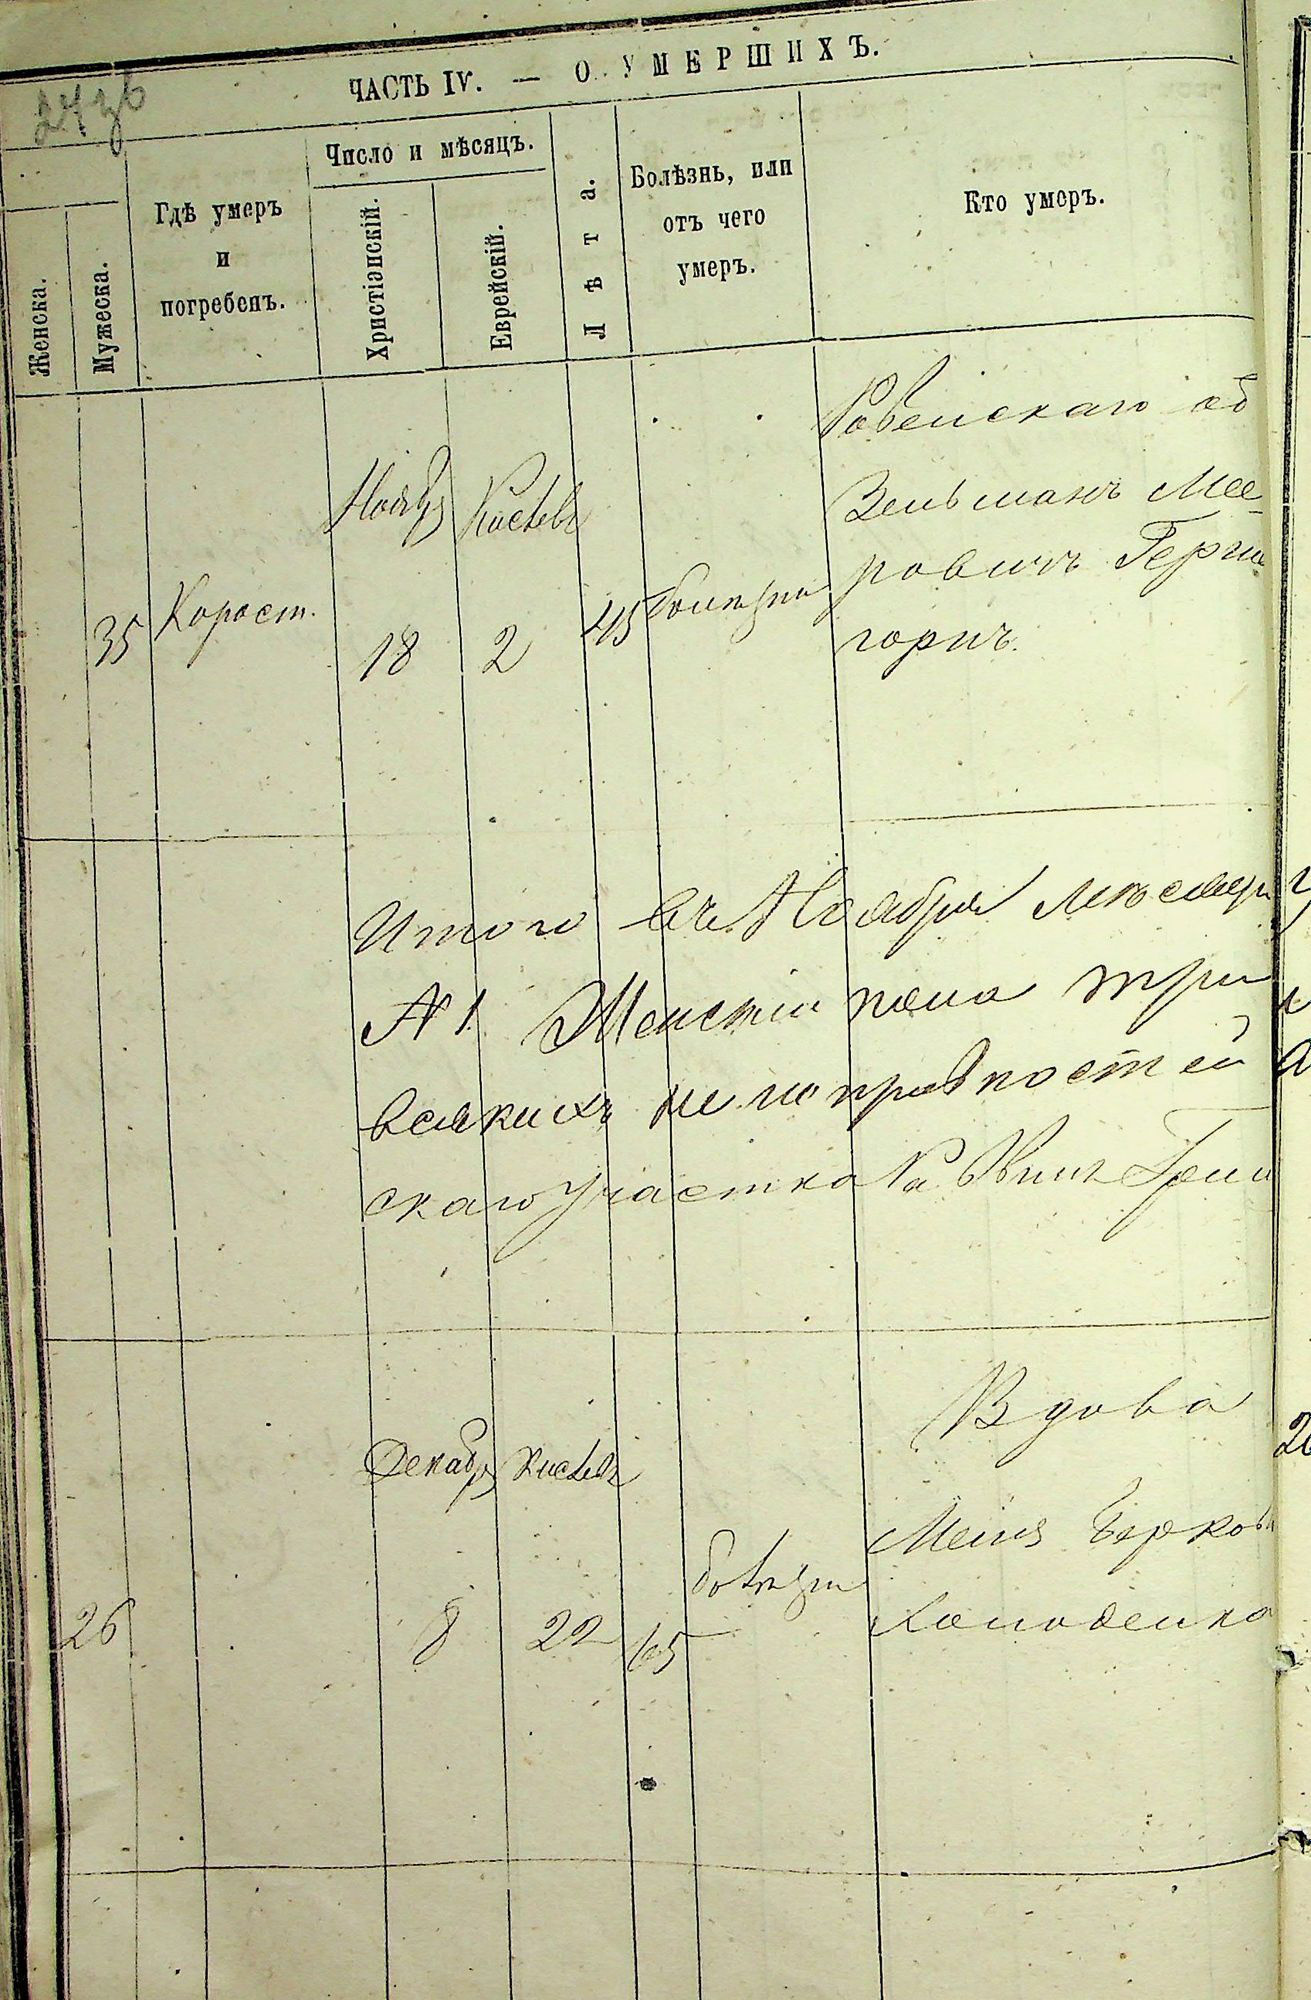 ЧАСТЬ IV. — О УМЕРШИХЪ.
247
Женска.
Мужеска.
Гдѣ умеръ
и
погребенъ.
Число и мѣсяцъ.
Христіанскій.
Еврейскій.
Лѣта.
Болѣзнь, или
отъ чего
умеръ.
Кто умеръ.
35
Корост.
Ноябр
18
Кислев
2
45
Ровенскаго об
Зельманъ Мее-
ровичъ
горнъ.
Итого въ Ноябрѣ мѣсяцѣ
№ 1 Женскаго пола три
всякихъ неисправностей
скаго участка Раввинъ
26
Декабр
8
Кислев
22
65
болезни
Вдова
Берков